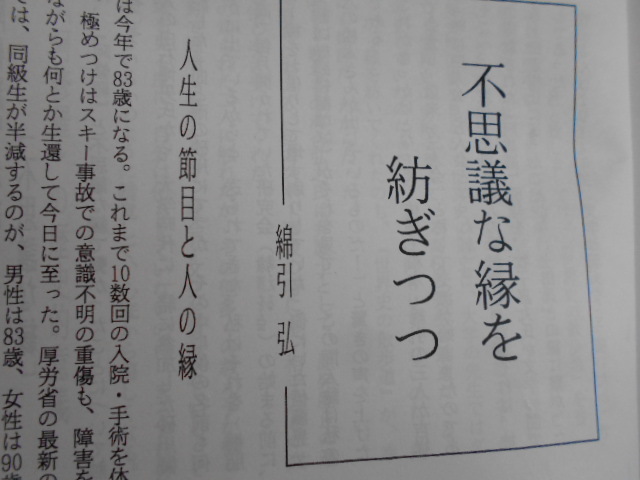 不思議な縁を
紡ぎつつ
綿引 弘
人生の節目と人の縁
は今年で83歳になる。これまで10数回の入院・手術を体
、極めつけはスキー事故での意識不明の重傷も、障害を
ながらも何とか生還して今日に至った。厚労省の最新の
では、同級生が半減するのが、男性は83歳、女性は90歳